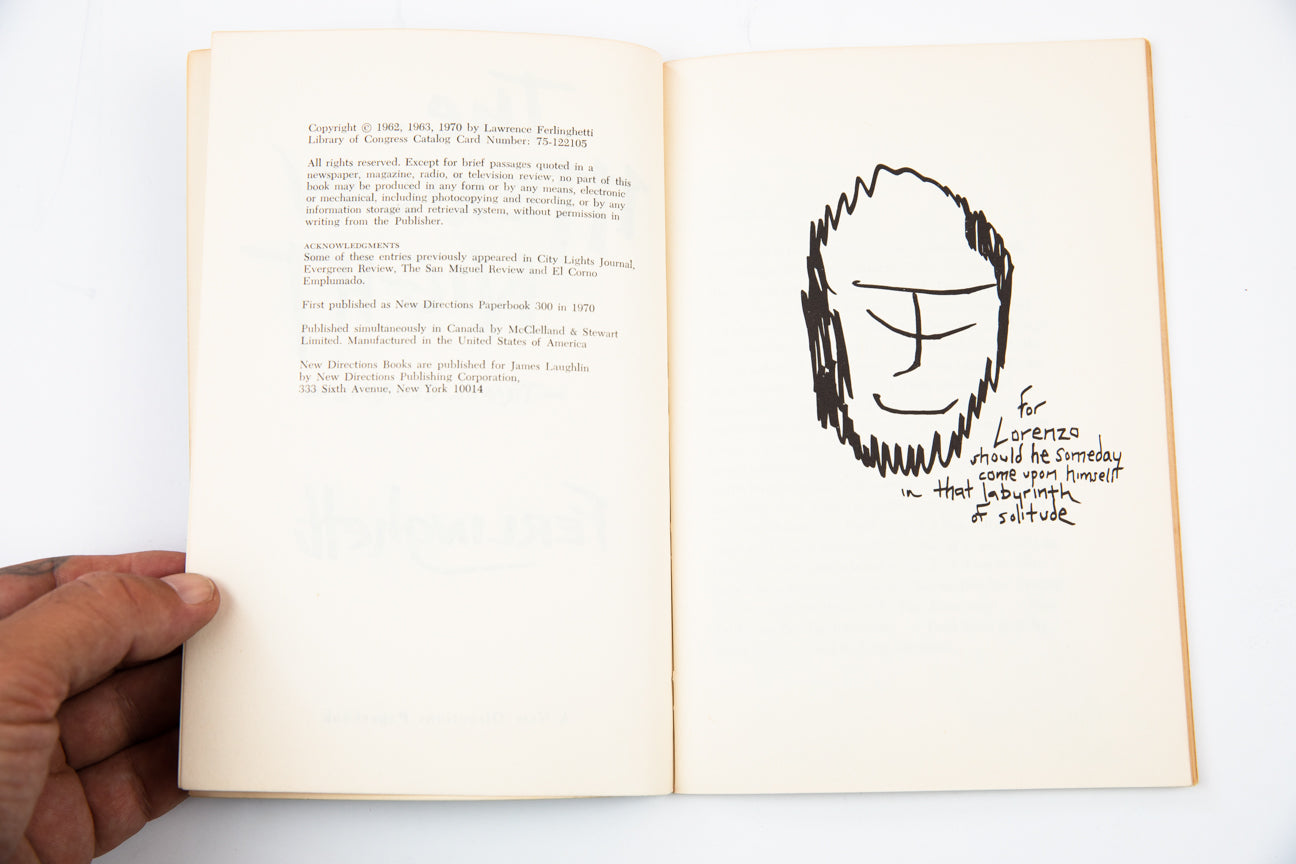 Copyright © 1962, 1963, 1970 by Lawrence Ferlinghetti
Library of Congress Catalog Card Number: 75-122105
All rights reserved. Except for brief passages quoted in a
newspaper, magazine, radio, or television review, no part of this
book may be produced in any form or by any means, electronic
or mechanical, including photocopying and recording, or by any
information storage and retrieval system, without permission in
writing from the Publisher.
ACKNOWLEDGMENTS
Some of these entries previously appeared in City Lights Journal,
Evergreen Review, The San Miguel Review and El Corno
Emplumado.
First published as New Directions Paperbook 300 in 1970
Published simultaneously in Canada by McClelland & Stewart
Limited. Manufactured in the United States of America
New Directions Books are published for James Laughlin
by New Directions Publishing Corporation,
333 Sixth Avenue, New York 10014
for
Lorenzo
should he someday
come upon himself
in that labyrinth
of solitude